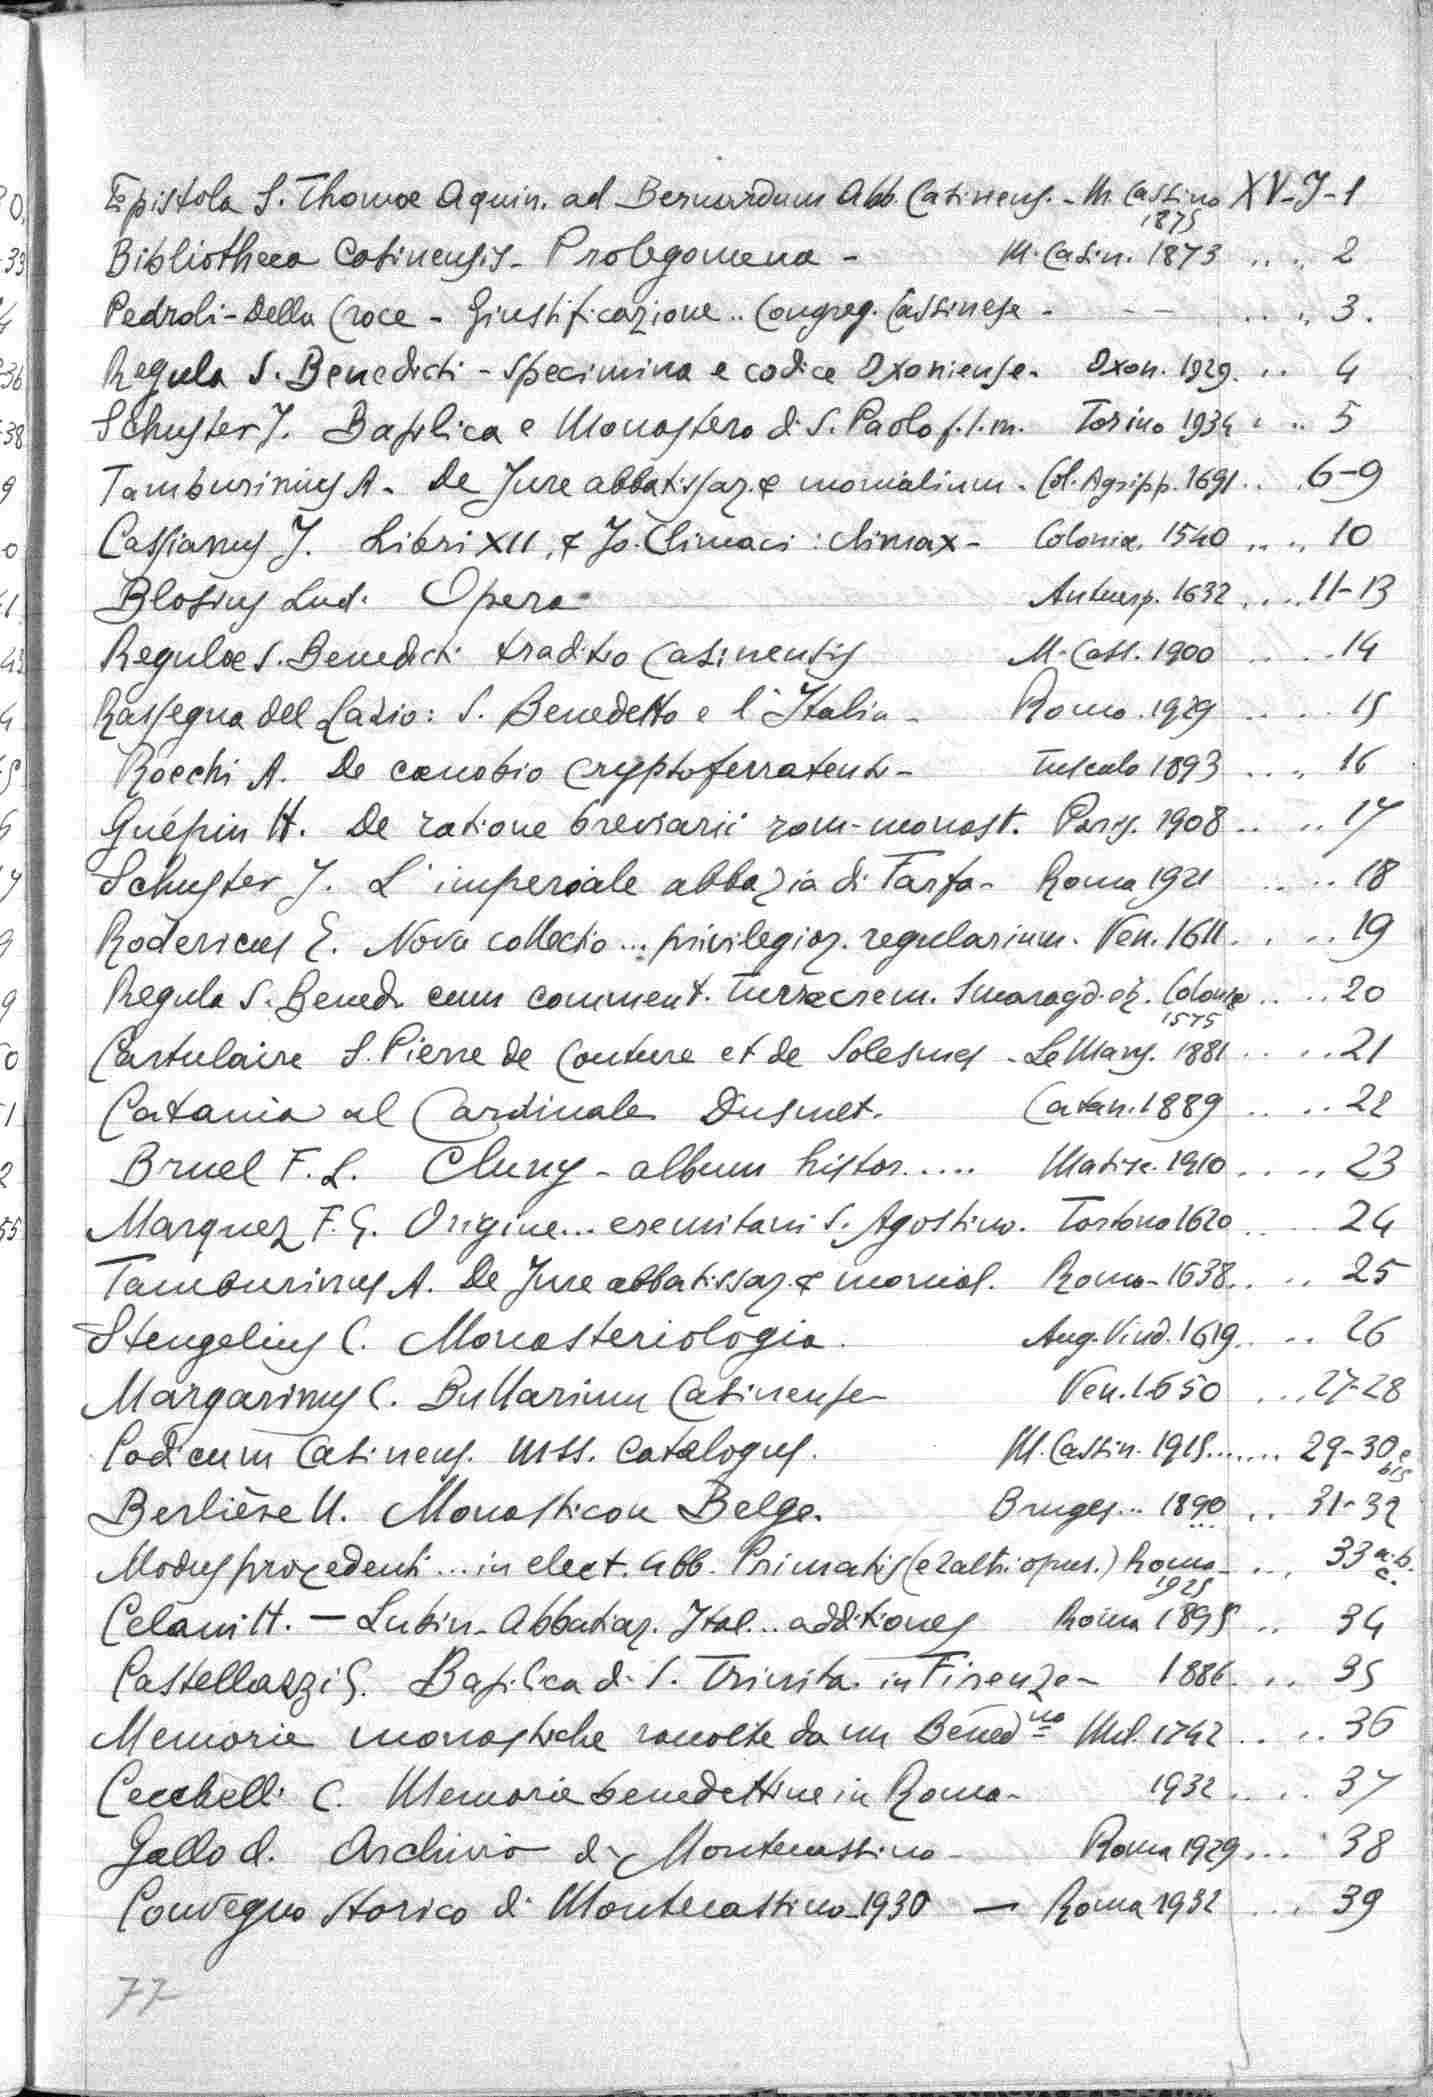 Epistola S. Thomae Aquin. ad Bernardum Abb. Casinens. - M. Cassino 1875 XV-J-1
Bibliotheca Casinensis - Prolegomena - M. Casin. 1873 .. .. 2
Pedroli-Della Croce - Giustificazione .. Congreg. Cassinese - - - .. .. 3.
Regula S. Benedicti - specimina e codice Oxoniense - Oxon. 1929. .. 4
Schuster J. Basilica e Monastero di S. Paolo f.l.m. Torino 1934 . .. 5
Tamburinius A - De Jure abbatissar. & monialium - Col. Agripp. 1691 .. . 6-9
Cassianus J. Libri XII, & Jo. Climaci : climax - Coloniae, 1540 .. .. 10
Blosius Lud. Opera Antuerp. 1632 .. .. 11-13
Regulae S. Benedicti traditio Casinensis M. Cass. 1900 .. .. 14
Rassegna del Lazio: S. Benedetto e l'Italia - Roma . 1929 .. .. 15
Rocchi A. De coenobio Cryptoferratensi - Tusculo 1893 .. .. 16
Guépin H. De ratione breviarii rom-monast. Paris. 1908 .. .. 17
Schuster J. L'imperiale abbazia di Farfa - Roma 1921 .. .. 18
Rodericus E. Nova collectio ... privilegior. regularium. Ven. 1611 . . .. 19
Regula S. Bened. cum comment. Turrecrem. Smaragd. etc. Coloniae 1575 .. .. 20
Cartulaire S. Pierre de Couture et de Solesmes - Le Mans. 1881 .. .. 21
Catania al Cardinale Dusmet. Catan. 1889 .. .. 22
Bruel F. L. Cluny - album histor. .... Matisc. 1910 .. .. 23
Marquez F. G. Origine ... eremitani S. Agostino. Tortona 1620 .. .. 24
Tamburinus A. De Jure abbatissar. & monial. Roma - 1638 .. .. 25
Stengelius C. Monasteriologia. Aug. Vind. 1619 .. .. 26
Margarinus C. Bullarium Casinense Ven. 1650 ... 27-28
Codicum Casinens. mss. catalogus. M. Cassin. 1915 ...... 29-30 e bis
Berlière U. Monasticon Belge. Bruges ... 1890 ... .. 31-32
Modus procedenti ... in elect. Abb. Primatis (e 2 altri opus.) Roma 1925 - ... 33 a. b. c.
Celani H. - Lubin - Abbatiar. Ital. .. additiones Roma 1895 .. 34
Castellazzi G. Basilica di S. Trinita in Firenze - 1886 . .. 35
Memorie monastiche raccolte da un Bened no Mil. 1742 .. .. 36
Cecchelli C. Memorie benedettine in Roma - 1932 .. .. 37
Gallo d. Archivio di Montecassino - Roma 1929 ... 38
Convegno storico di Montecassino - 1930 - Roma 1932 ... 39
77